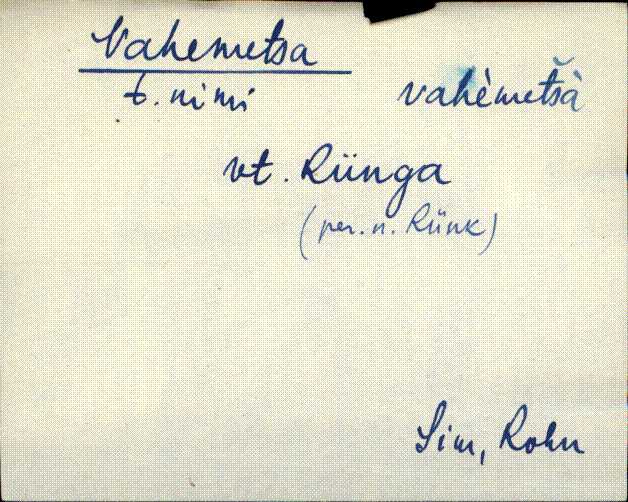 Vahemetsa
t. nimi vahèmetšà
vt. Rünga
(per. n. Rünk)
Sim, Rohu